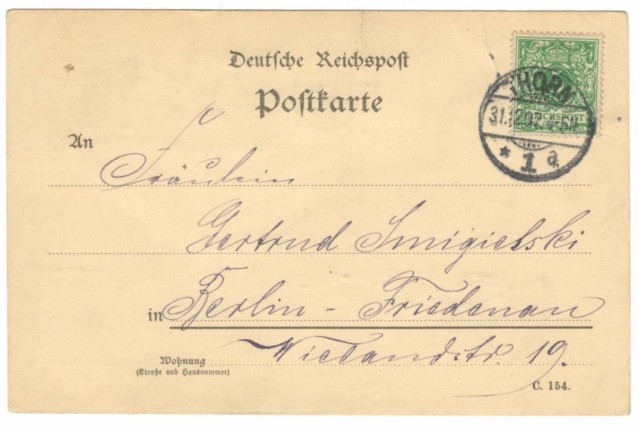 Deutsche Reichspost
Postkarte
THORN
31.12.97.4-5N.
* 1 a
REICHSPOST
An
Fräulein
Gertrud Smigielski
in Berlin - Friedenau
Wielandstr. 19.
Wohnung
(Straße und Hausnummer)
C. 154.